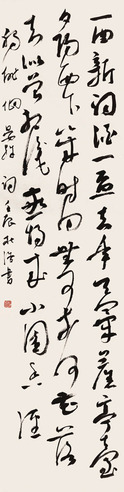 一曲新詞酒一杯去年天氣舊亭臺
夕陽西下幾時回無可奈何花落
去似曾相識燕歸來小園香徑
獨徘徊 晏殊詞 壬辰 書